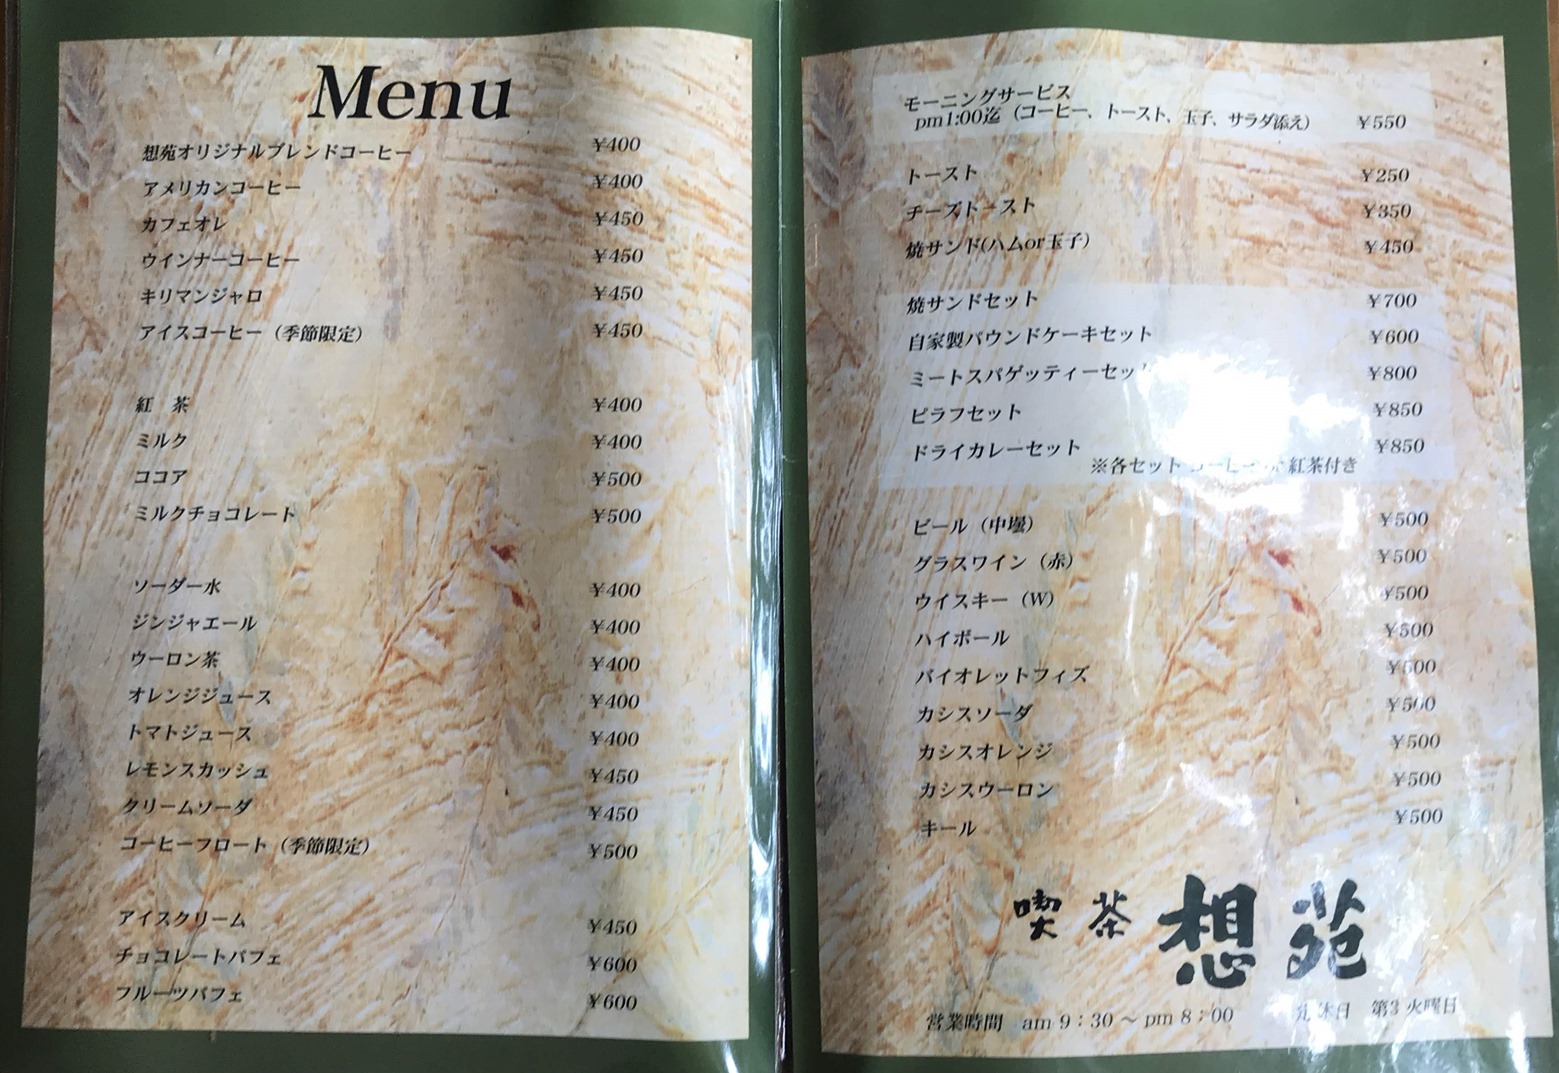 Menu
想苑オリジナルブレンドコーヒー ¥400
アメリカンコーヒー ¥400
カフェオレ ¥450
ウインナーコーヒー ¥450
キリマンジャロ ¥450
アイスコーヒー（季節限定） ¥450
紅　茶 ¥400
ミルク ¥400
ココア ¥500
ミルクチョコレート ¥500
ソーダー水 ¥400
ジンジャエール ¥400
ウーロン茶 ¥400
オレンジジュース ¥400
トマトジュース ¥400
レモンスカッシュ ¥450
クリームソーダ ¥450
コーヒーフロート（季節限定） ¥500
アイスクリーム ¥450
チョコレートパフェ ¥600
フルーツパフェ ¥600
モーニングサービス
pm1:00迄（コーヒー、トースト、玉子、サラダ添え） ¥550
トースト ¥250
チーズトースト ¥350
焼サンド(ハムor玉子) ¥450
焼サンドセット ¥700
自家製パウンドケーキセット ¥600
ミートスパゲッティーセット ¥800
ピラフセット ¥850
ドライカレーセット ¥850
※各セット コーヒー or 紅茶付き
ビール（中壜） ¥500
グラスワイン（赤） ¥500
ウイスキー（W） ¥500
ハイボール ¥500
バイオレットフィズ ¥500
カシスソーダ ¥500
カシスオレンジ ¥500
カシスウーロン ¥500
キール ¥500
喫茶 想苑
営業時間　am 9：30 ～ pm 8：00　定休日　第3 火曜日